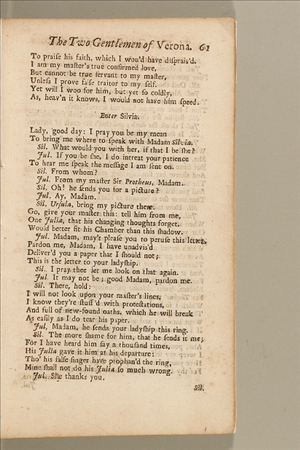 The Two Gentlemen of Verona. 61
To praise his faith, which I wou'd have disprais'd.
I am my master's true confirmed love,
But cannot be true servant to my master,
Unless I prove false traitor to my self.
Yet will I woo for him, but yet so coldly,
As, heav'n it knows, I would not have him speed.
Enter Silvia.
Lady, good day: I pray you be my mean
To bring me where to speak with Madam Silvia.
Sil. What would you with her, if that I be she?
Jul. If you be she, I do intreat your patience
To hear me speak the message I am sent on.
Sil. From whom?
Jul. From my master Sir Protheus, Madam.
Sil. Oh! he sends you for a picture?
Jul. Ay, Madam.
Sil. Ursula, bring my picture there.
Go, give your master this: tell him from me,
One Julia, that his changing thoughts forget,
Would better fit his Chamber than this shadow.
Jul. Madam, may't please you to peruse this letter.
Pardon me, Madam, I have unadvis'd
Deliver'd you a paper that I should not;
This is the letter to your ladyship.
Sil. I pray thee let me look on that again.
Jul. It may not be; good Madam, pardon me.
Sil. There, hold:
I will not look upon your master's lines;
I know they're stuff'd with protestations,
And full of new-found oaths, which he will break
As easily as I do tear his paper.
Jul. Madam, he sends your ladyship this ring.
Sil. The more shame for him, that he sends it me;
For I have heard him say a thousand times,
His Julia gave it him at his departure:
Tho' his false finger have prophan'd the ring,
Mine shall not do his Julia so much wrong.
Jul. She thanks you.
Sil.